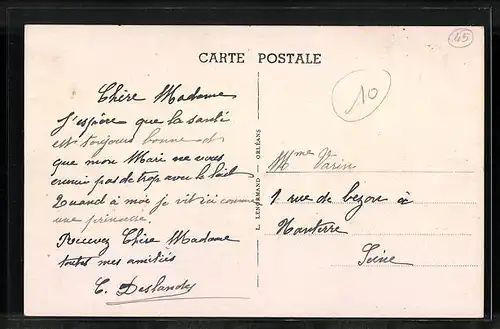 45
CARTE POSTALE
10
Chère Madame
J'espère que la santé
est toujours bonne et
que mon Mari ne vous
ennuie pas de trop avec le lait
Quand à moi je vit ici comme
une princesse.
Recevez Chère Madame
toutes mes amitiés
C. Deslandes
L. LENORMAND — ORLÉANS
Mme Varin
1 rue de bezon à
Nanterre
Seine